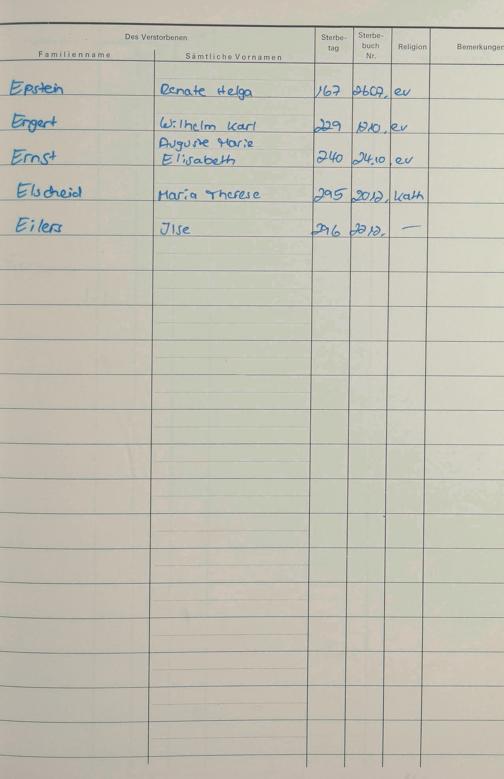 Des Verstorbenen
Familienname Sämtliche Vornamen Sterbe-tag Sterbe-buch Nr. Religion Bemerkungen
Epstein Renate Helga 167 26.07. ev
Engert Wilhelm Karl 229 12.10. ev
Auguste Marie
Ernst Elisabeth 240 24.10. ev
Elscheid Maria Therese 295 20.12. kath
Eilers Ilse 296 22.12. —